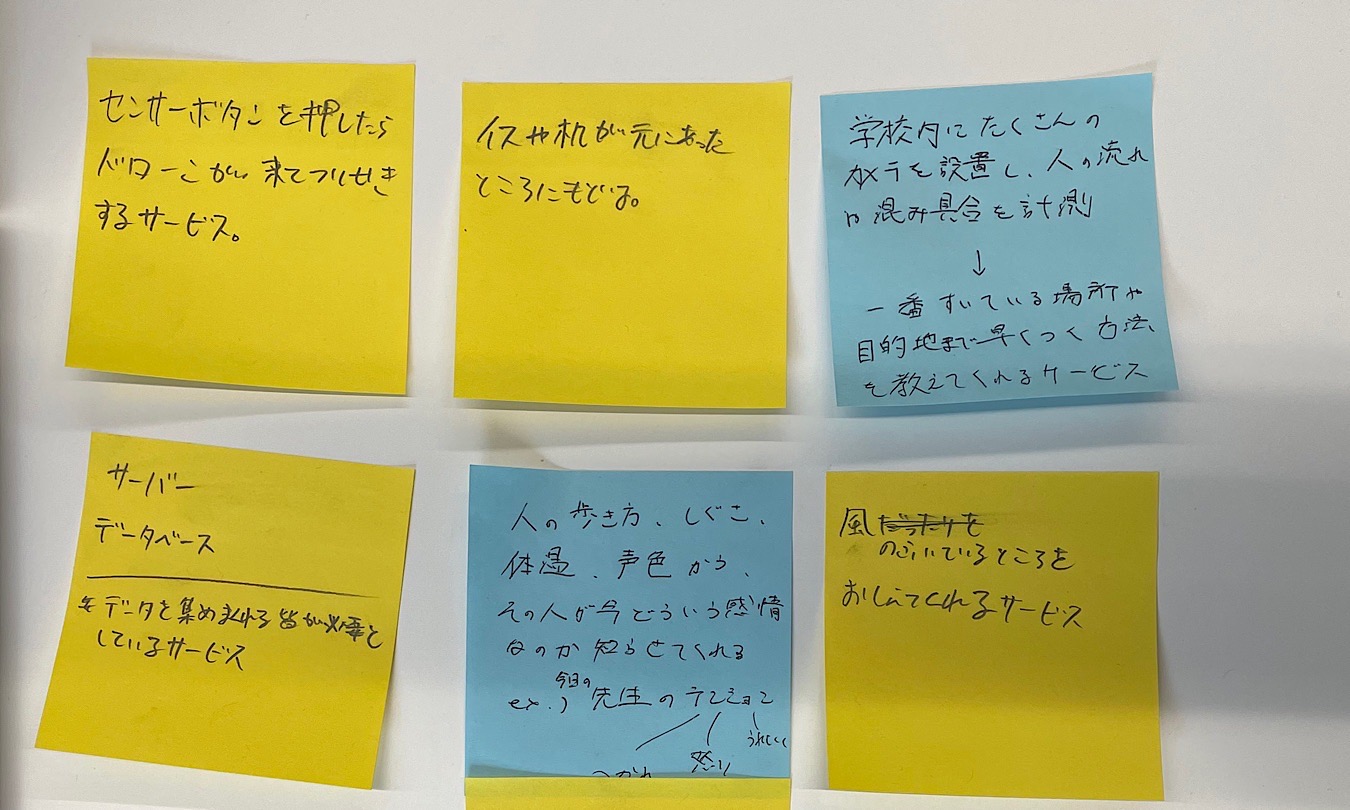 センサーボタンを押したら
ドローンが来てついせき
するサービス。
イスや机が元にあった
ところにもどる。
学校内にたくさんの
カメラを設置し、人の流れ
や混み具合を計測
↓
一番すいている場所や
目的地まで早くつく方法
を教えてくれるサービス
サーバー
データベース
データを集めまくれる皆が必要と
しているサービス
人の歩き方、しぐさ、
体温、声色から、
その人が今どういう感情
なのか知らせてくれる
ex.) 今日の先生のテンション
うれしい
怒り
つかれ
風
のふいているところを
おしえてくれるサービス